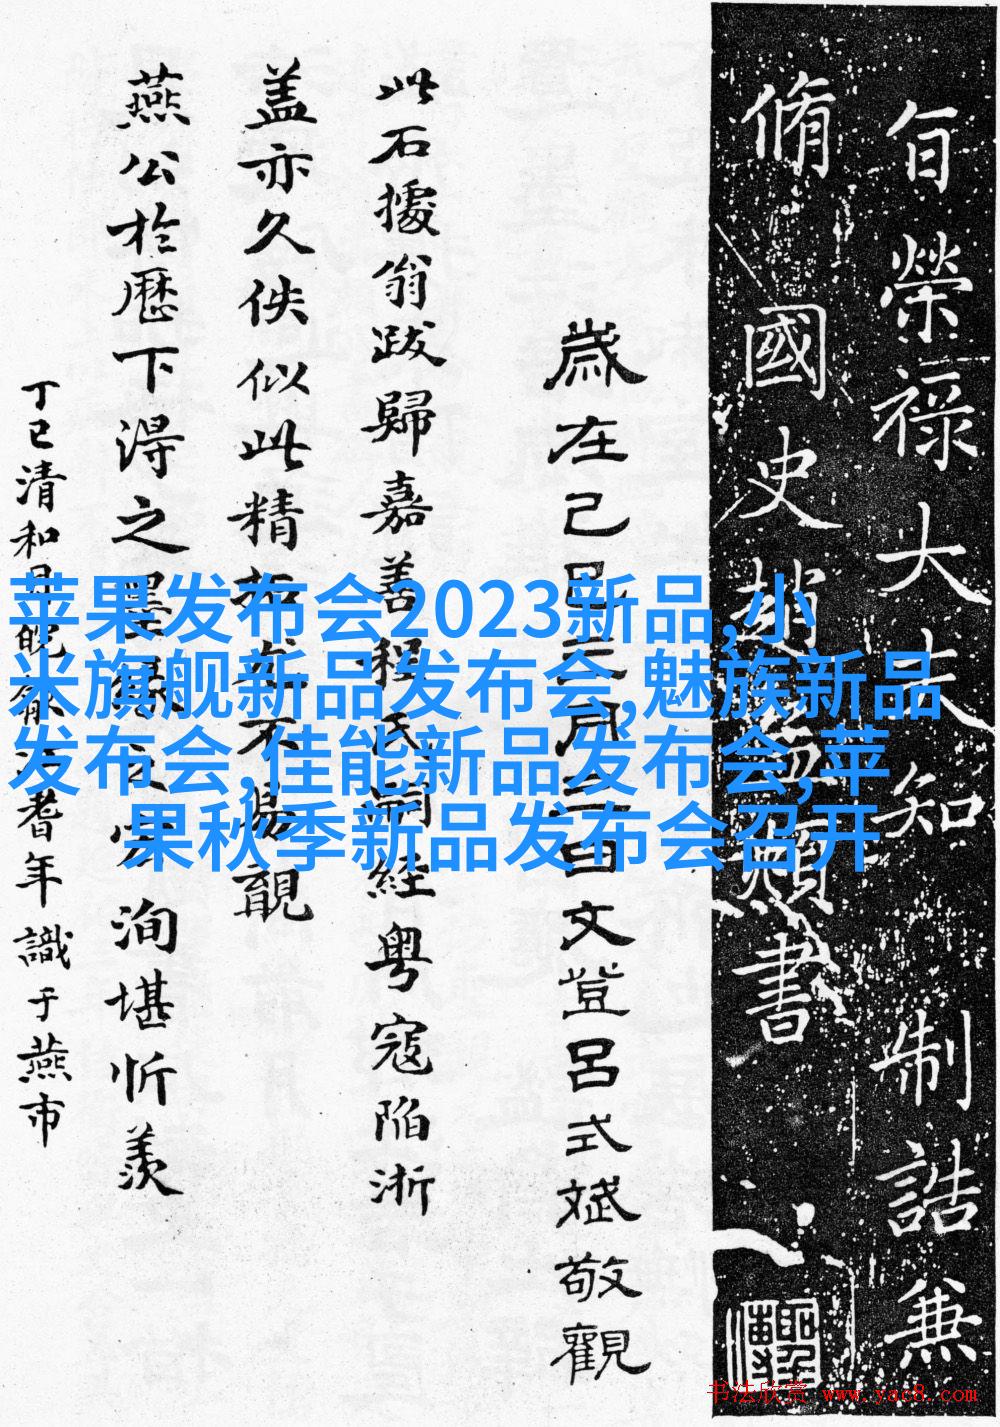 旨榮祿大夫知制誥兼
脩國史趙孟頫書
歲在己巳三月三日文登呂式斌敬觀
此石據翁跋歸嘉善程氏嗣經粵寇陷浙
盖亦久佚似此精拓不易覯
燕公於歷下得之墨緣洵堪忻羨
丁巳清和月皖耆年識于燕市
苹果发布会2023新品,小
米旗舰新品发布会,魅族新品
发布会,佳能新品发布会,苹
果秋季新品发布会召开
书法欣赏 www.yac8.com